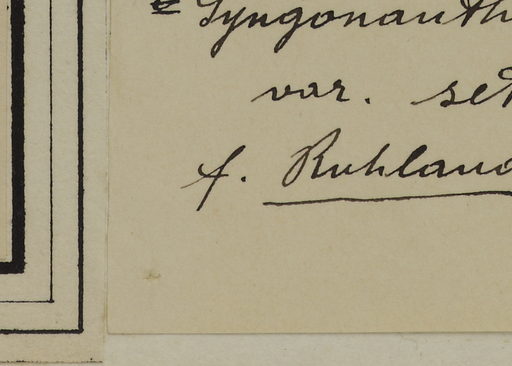 = Syngonanth
var. set
f. Ruhland